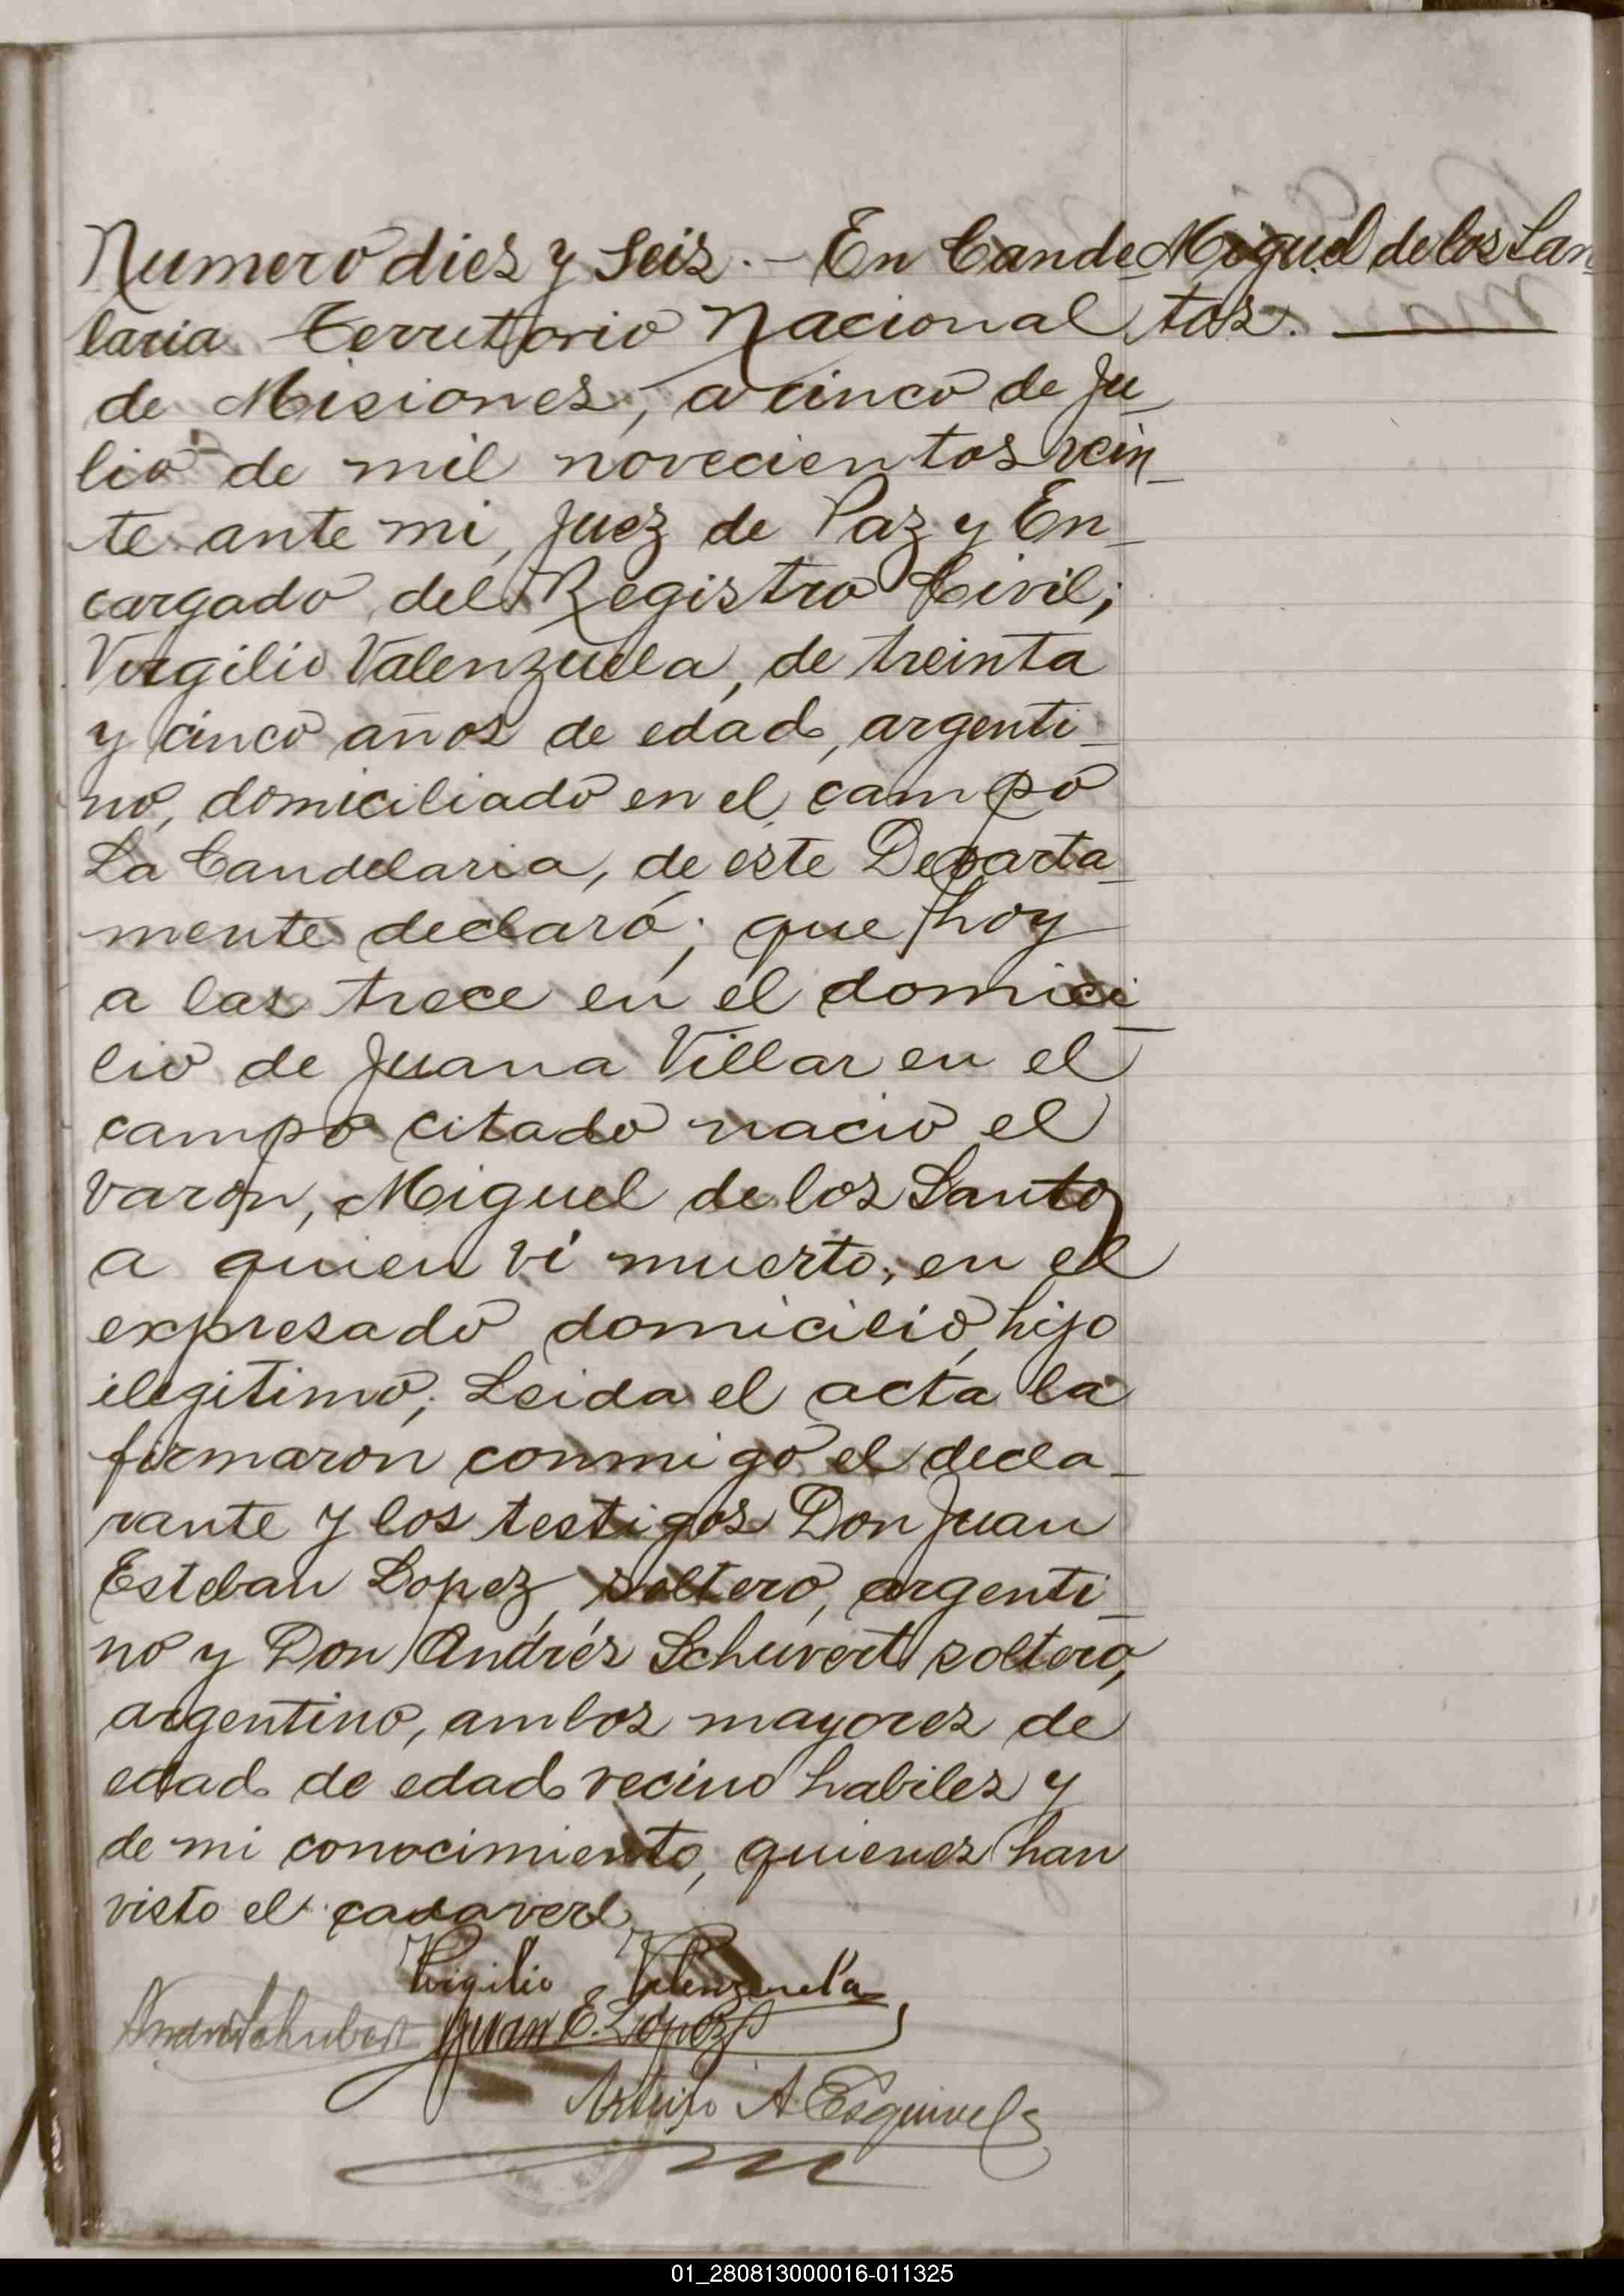 Numero diez y Seis.- En Cande
laria Territorio Nacional
de Misiones, a cinco de Ju_
lio de mil novecientos vein_
te ante mi, Juez de Paz y En_
cargado del Registro Civil;
Virgilio Valenzuela, de treinta
y cinco años de edad, argenti_
no, domiciliado en el campo
La Candelaria, de este Departa_
mente declaró; que hoy
a las trece en el domici_
lio de Juana Villar en el
campo citado nació el
varon, Miguel de los Santos
a quien ví muerto, en el
expresado domicilio, hijo
ilegitimo; Leida el acta la
firmaron conmigo el decla_
rante y los testigos Don Juan
Esteban Lopez, soltero, argenti_
no y Don Andrés Schuvert soltero,
argentino, ambos mayores de
edad de edad vecino habiles y
de mi conocimiento, quienes han
visto el cadaverl
Virgilio Valenzuela
Andres Schubert Juan E. Lopez
Arturo A Esquivel
Miguel de los San
tos.
01_280813000016-011325